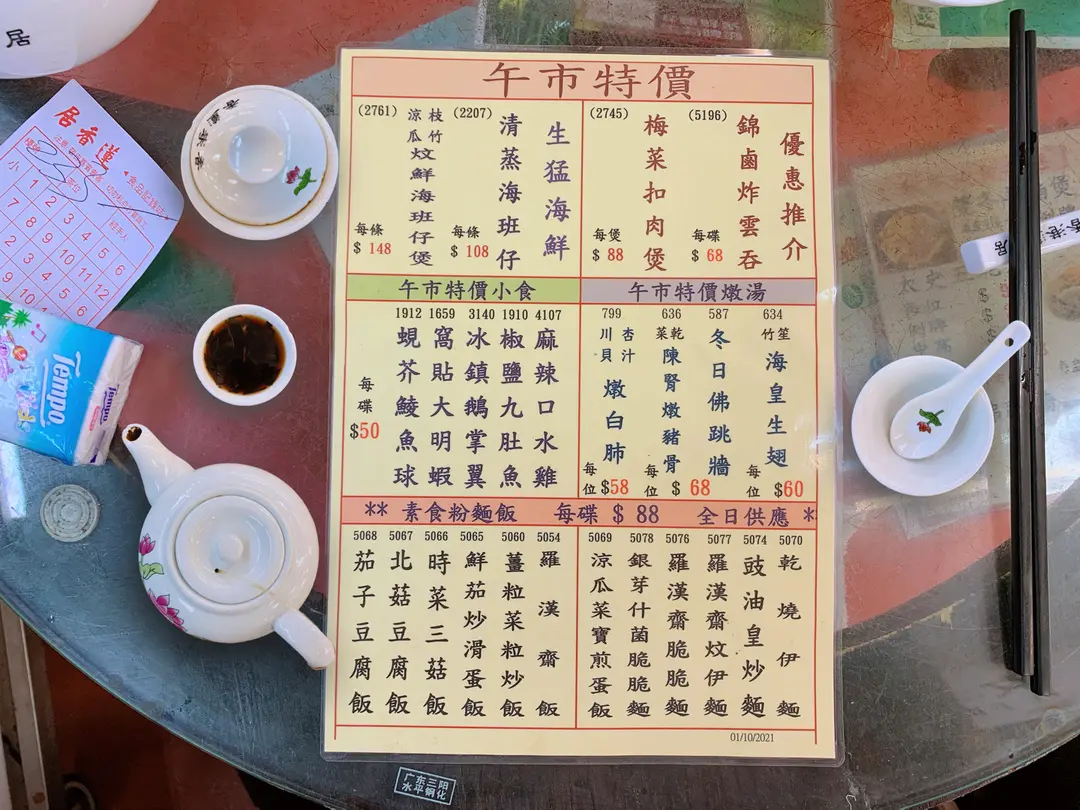 午市特價
優惠推介
(5196)
錦鹵炸雲吞
每碟
$ 68
(2745)
梅菜扣肉煲
每煲
$ 88
生猛海鮮
(2207)
清蒸海班仔
每條
$ 108
(2761)
枝竹
涼瓜
炆鮮海班仔煲
每條
$ 148
午市特價小食
4107
麻辣口水雞
1910
椒鹽九肚魚
3140
冰鎮鵝掌翼
1659
窩貼大明蝦
1912
蜆芥鯪魚球
每碟
$50
午市特價燉湯
634
竹笙
海皇生翅
每位 $60
587
冬日佛跳牆
636
菜乾
陳腎燉豬骨
每位 $ 68
799
川貝
杏汁
燉白肺
每位 $58
** 素食粉麵飯 每碟 $ 88 全日供應 *
5070
乾燒伊麵
5074
豉油皇炒麵
5077
羅漢齋炆伊麵
5076
羅漢齋脆脆麵
5078
銀芽什菌脆脆麵
5069
涼瓜菜寶煎蛋飯
5054
羅漢齋飯
5060
薑粒菜粒炒飯
5065
鮮茄炒滑蛋飯
5066
時菜三菇飯
5067
北菇豆腐飯
5068
茄子豆腐飯
01/10/2021
居
蓮香居
小
Tempo
Tempo
广东三阳
水平钢化